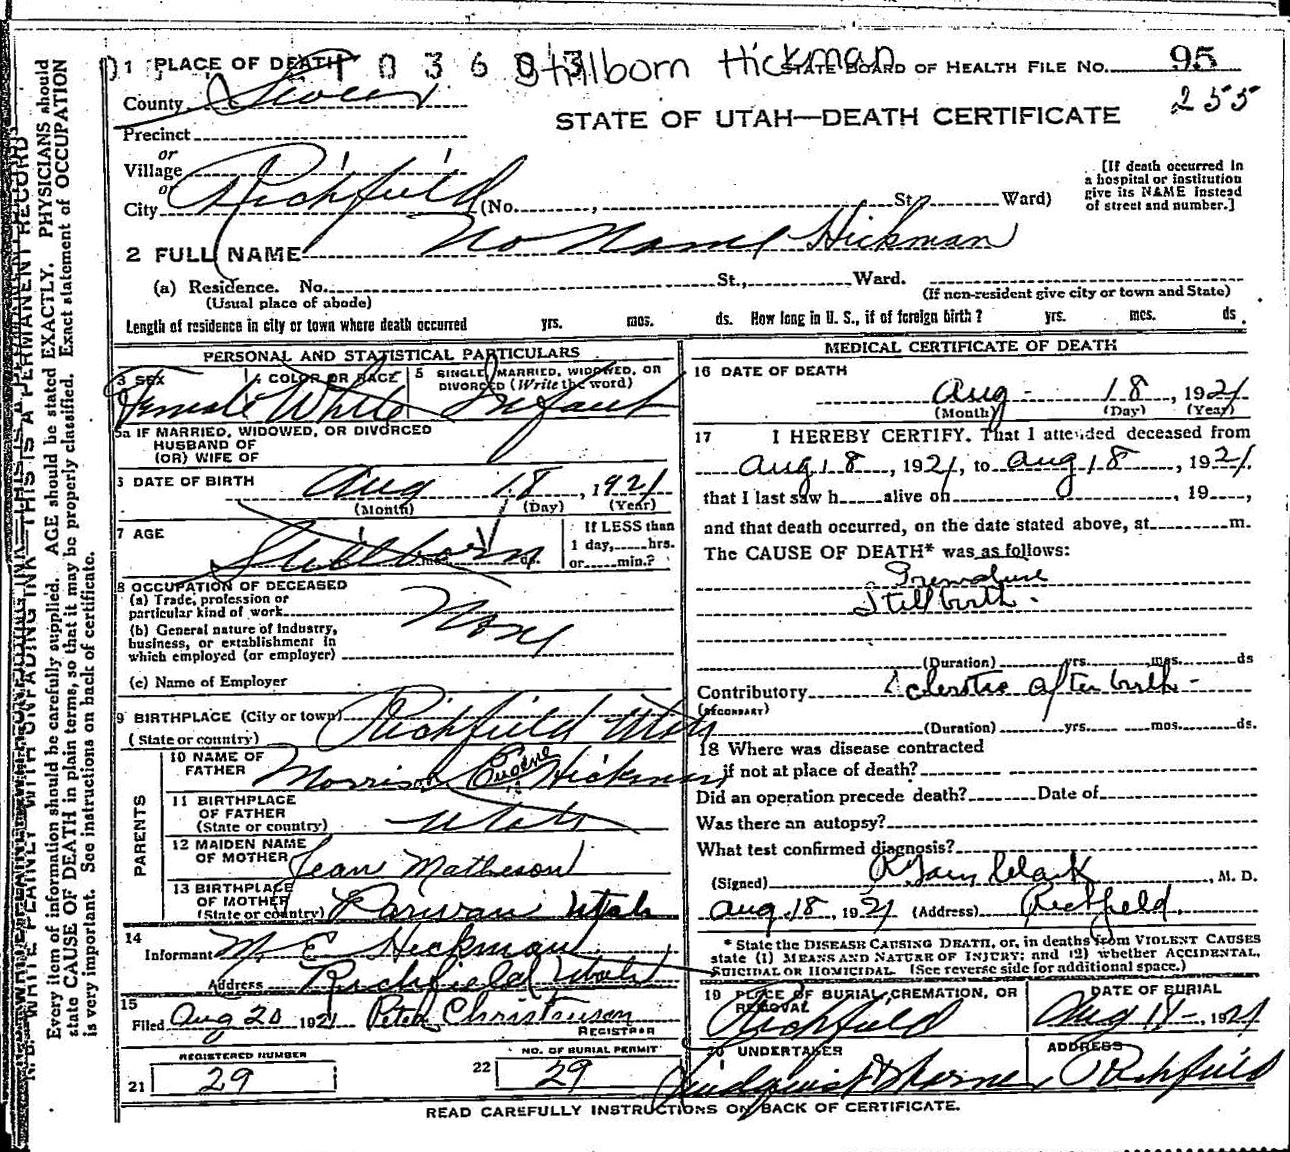 1 PLACE OF DEATH Stillborn Hickman STATE BOARD OF HEALTH FILE NO. 95
County Sevier 255
STATE OF UTAH—DEATH CERTIFICATE
Precinct
or
Village
or
City Richfield (No. , St. Ward)
[If death occurred in
a hospital or institution
give its NAME instead
of street and number.]
2 FULL NAME No Name Hickman
(a) Residence. No. St., Ward.
(Usual place of abode) (If non-resident give city or town and State)
Length of residence in city or town where death occurred yrs. mos. ds. How long in U. S., if of foreign birth? yrs. mos. ds.
PERSONAL AND STATISTICAL PARTICULARS
3 SEX 4 COLOR OR RACE 5 SINGLE, MARRIED, WIDOWED, OR
DIVORCED (Write the word)
Female White Infant
5a IF MARRIED, WIDOWED, OR DIVORCED
HUSBAND OF
(OR) WIFE OF
6 DATE OF BIRTH Aug 18, 1921
(Month) (Day) (Year)
7 AGE Stillborn
If LESS than
1 day, hrs.
or min.?
8 OCCUPATION OF DECEASED
(a) Trade, profession or
particular kind of work None
(b) General nature of industry,
business, or establishment in
which employed (or employer)
(c) Name of Employer
9 BIRTHPLACE (City or town) Richfield Utah
(State or country)
PARENTS
10 NAME OF
FATHER Morrison Eugene Hickman
11 BIRTHPLACE
OF FATHER
(State or country) Utah
12 MAIDEN NAME
OF MOTHER Jean Matheson
13 BIRTHPLACE
OF MOTHER
(State or country) Parowan Utah
14
Informant M. E. Hickman
Address Richfield Utah
15
Filed Aug 20 1921 Peter Christensen
REGISTRAR
REGISTERED NUMBER
21 29
NO. OF BURIAL PERMIT
22 29
MEDICAL CERTIFICATE OF DEATH
16 DATE OF DEATH
Aug - 18, 1921
(Month) (Day) (Year)
17 I HEREBY CERTIFY, That I attended deceased from
Aug 18, 1921, to Aug 18, 1921
that I last saw h alive on , 19 ,
and that death occurred, on the date stated above, at m.
The CAUSE OF DEATH* was as follows:
Premature
Stillbirth -
(Duration) yrs. mos. ds
Contributory Sclerotic afterbirth -
(SECONDARY)
(Duration) yrs. mos. ds.
18 Where was disease contracted
if not at place of death?
Did an operation precede death? Date of
Was there an autopsy?
What test confirmed diagnosis?
(Signed) Clark, M. D.
Aug 18, 1921 (Address) Richfield
* State the DISEASE CAUSING DEATH, or, in deaths from VIOLENT CAUSES
state (1) MEANS AND NATURE OF INJURY; and (2) whether ACCIDENTAL,
SUICIDAL OR HOMICIDAL. (See reverse side for additional space.)
19 PLACE OF BURIAL, CREMATION, OR
REMOVAL DATE OF BURIAL
Richfield Aug 1921
20 UNDERTAKER ADDRESS
Richfield
READ CAREFULLY INSTRUCTIONS ON BACK OF CERTIFICATE.
N. B.—WRITE PLAINLY WITH UNFADING INK—THIS IS A PERMANENT RECORD
Every item of information should be carefully supplied. AGE should be stated EXACTLY. PHYSICIANS should
state CAUSE OF DEATH in plain terms, so that it may be properly classified. Exact statement of OCCUPATION
is very important. See instructions on back of certificate.